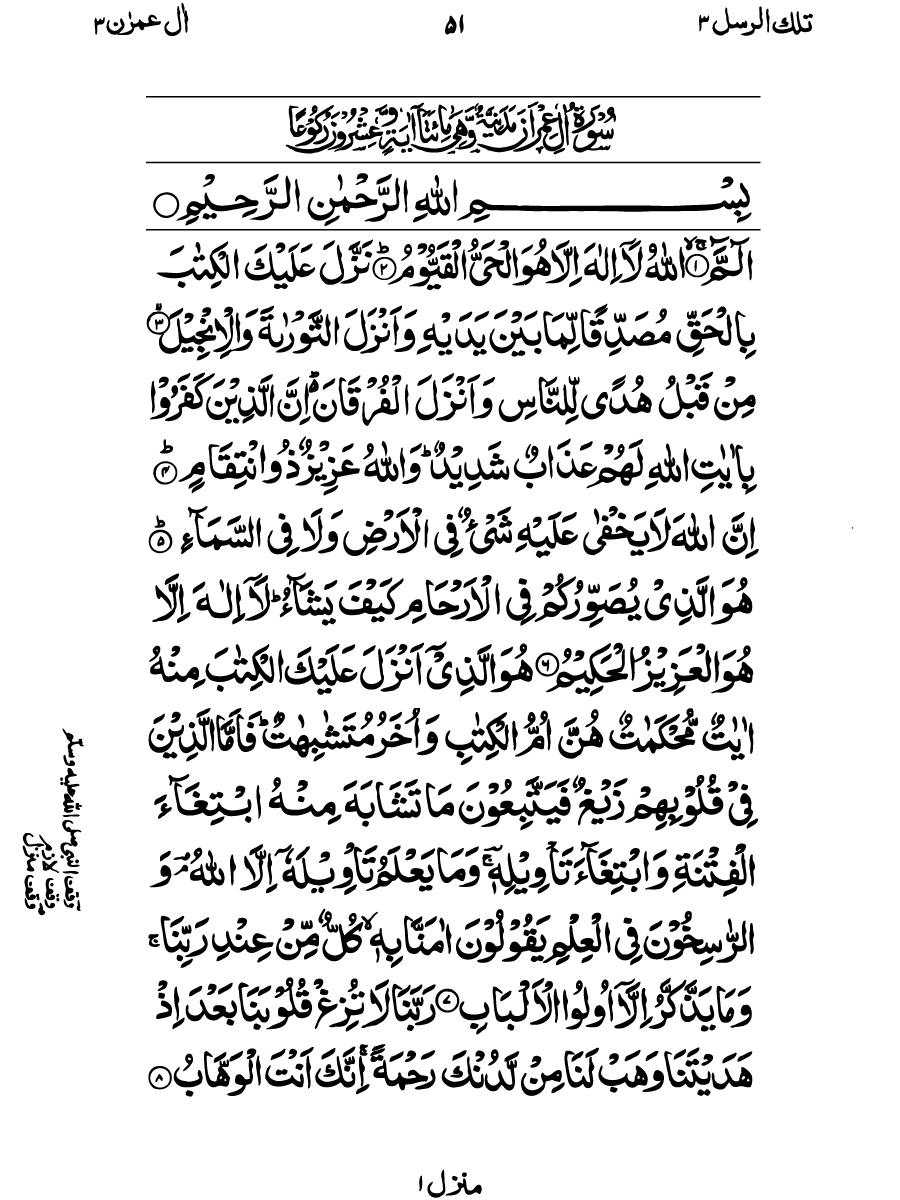 تلك الرسل ٣
۵۱
اٰل عمرٰن ٣
سُوْرَةُ اٰلِ عِمْرَانَ مَدَنِيَّةٌ وَّهِيَ مِائَتَا اٰيَةٍ وَّعِشْرُوْنَ رُكُوْعًا
بِسْمِ اللّٰهِ الرَّحْمٰنِ الرَّحِيْمِ ○
الٓـمّٓ ۙ‏ۚ ﴿۱﴾ اللّٰهُ لَاۤ اِلٰهَ اِلَّا هُوَ الْحَىُّ الْقَيُّوْمُ ؕ ﴿۲﴾ نَزَّلَ عَلَيْكَ الْكِتٰبَ
بِالْحَقِّ مُصَدِّقًا لِّمَا بَيْنَ يَدَيْهِ وَاَنْزَلَ التَّوْرٰىةَ وَالْاِنْجِيْلَ ۙ ﴿۳﴾
مِنْ قَبْلُ هُدًى لِّلنَّاسِ وَاَنْزَلَ الْفُرْقَانَ ؕ اِنَّ الَّذِيْنَ كَفَرُوْا
بِاٰيٰتِ اللّٰهِ لَهُمْ عَذَابٌ شَدِيْدٌ ؕ وَاللّٰهُ عَزِيْزٌ ذُو انْتِقَامٍ ؕ ﴿۴﴾
اِنَّ اللّٰهَ لَا يَخْفٰى عَلَيْهِ شَىْءٌ فِى الْاَرْضِ وَلَا فِى السَّمَآءِ ؕ ﴿۵﴾
هُوَ الَّذِىْ يُصَوِّرُكُمْ فِى الْاَرْحَامِ كَيْفَ يَشَآءُ ؕ لَاۤ اِلٰهَ اِلَّا
هُوَ الْعَزِيْزُ الْحَكِيْمُ ﴿۶﴾ هُوَ الَّذِىْۤ اَنْزَلَ عَلَيْكَ الْكِتٰبَ مِنْهُ
اٰيٰتٌ مُّحْكَمٰتٌ هُنَّ اُمُّ الْكِتٰبِ وَاُخَرُ مُتَشٰبِهٰتٌ ؕ فَاَمَّا الَّذِيْنَ
فِىْ قُلُوْبِهِمْ زَيْغٌ فَيَتَّبِعُوْنَ مَا تَشَابَهَ مِنْهُ ابْتِغَآءَ
الْفِتْنَةِ وَابْتِغَآءَ تَاْوِيْلِهٖ ۚ وَمَا يَعْلَمُ تَاْوِيْلَهٗۤ اِلَّا اللّٰهُ ۘ وَ
الرّٰسِخُوْنَ فِى الْعِلْمِ يَقُوْلُوْنَ اٰمَنَّا بِهٖ ۙ كُلٌّ مِّنْ عِنْدِ رَبِّنَا ۚ
وَمَا يَذَّكَّرُ اِلَّاۤ اُولُوا الْاَلْبَابِ ﴿۷﴾ رَبَّنَا لَا تُزِغْ قُلُوْبَنَا بَعْدَ اِذْ
هَدَيْتَنَا وَهَبْ لَنَا مِنْ لَّدُنْكَ رَحْمَةً ۚ اِنَّكَ اَنْتَ الْوَهَّابُ ﴿۸﴾
وقف النبى صلى الله عليه وسلم
وقف لازم
وقف منزل
منزل ۱